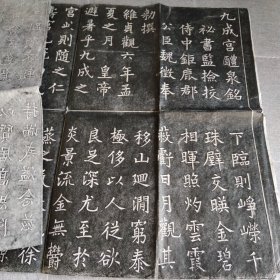 九成宮醴泉銘
秘書監撿挍
侍中鉅鹿郡
公臣魏徵奉
勅撰
維貞觀六年孟
夏之月皇帝
避暑乎九成之
宮此則隨之仁
下臨則崢嶸千
珠璧交映金碧
相暉照灼雲霞
蔽虧日月觀其
移山迴澗窮泰
極侈以人從欲
良足深尤至於
炎景流金無鬱
蒸之氣徐